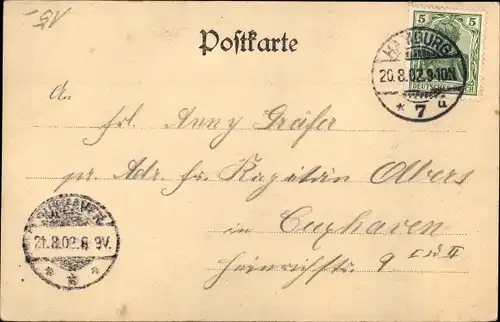 15.-
Postkarte
5 5
DEUTSCHES REICH
HAMBURG
20.8.02.9-10N.
* 7 a
An
Frl. Anny Gräfer
pr. Adr. Hr. Kapitän Olbers
in Cuxhaven
Heinrichstr. 9 II
CUXHAVEN
21.8.02. 8-9V.